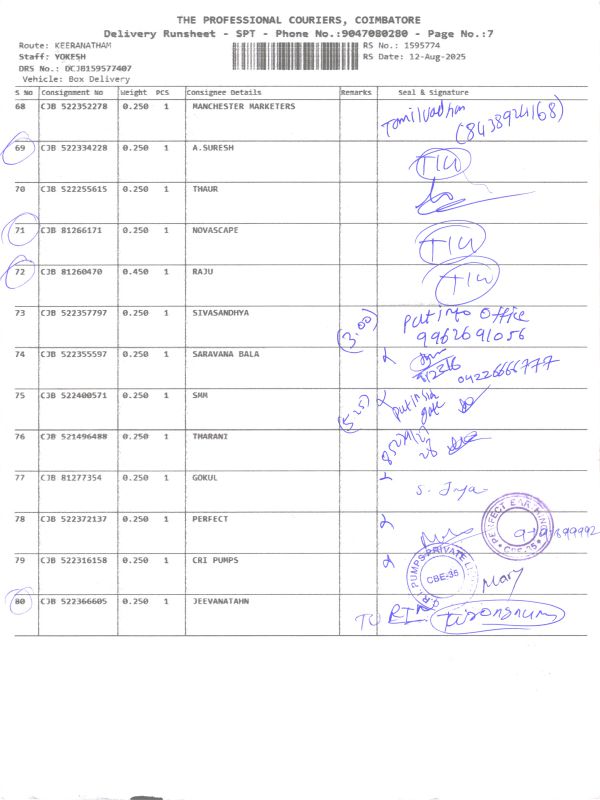 THE PROFESSIONAL COURIERS, COIMBATORE
Delivery Runsheet - SPT - Phone No.:9047080280 - Page No.:7
Route: KEERANATHAM RS No.: 1595774
Staff: YOKESH RS Date: 12-Aug-2025
DRS No.: DCJB159577407
Vehicle: Box Delivery
S No Consignment No Weight PCS Consignee Details Remarks Seal & signature
68 CJB 522352278 0.250 1 MANCHESTER MARKETERS Tamilvadhan
(8438924168)
69 CJB 522334228 0.250 1 A.SURESH
70 CJB 522255615 0.250 1 THAUR
71 CJB 81266171 0.250 1 NOVASCAPE
72 CJB 81260470 0.450 1 RAJU
73 CJB 522357797 0.250 1 SIVASANDHYA (3.00) Put info Office
9962691056
74 CJB 522355597 0.250 1 SARAVANA BALA 04226666777
75 CJB 522400571 0.250 1 SMM (5.25) put in side
gate
76 CJB 521496488 0.250 1 THARANI
77 CJB 81277354 0.250 1 GOKUL
78 CJB 522372137 0.250 1 PERFECT
79 CJB 522316158 0.250 1 CRI PUMPS C.R.I. PUMPS PRIVATE CBE-35 Mary
80 CJB 522366605 0.250 1 JEEVANATAHN